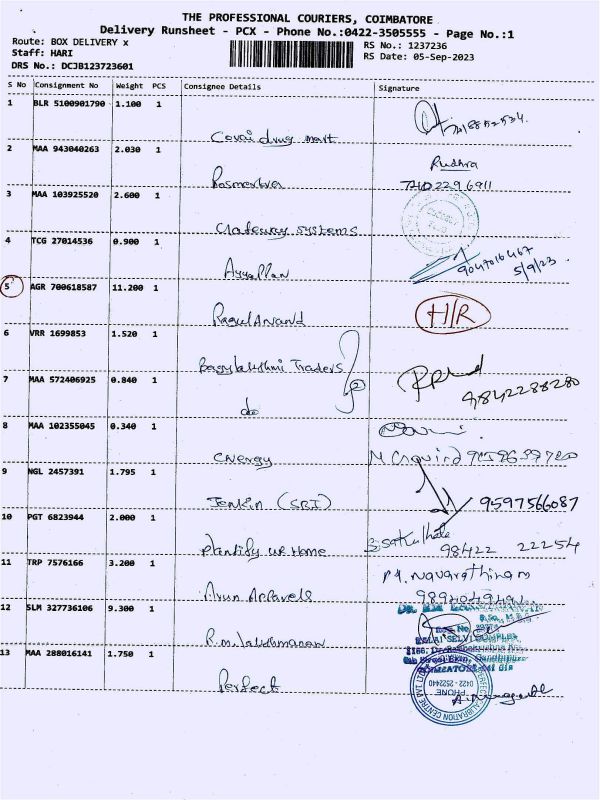 THE PROFESSIONAL COURIERS, COIMBATORE
Delivery Runsheet - PCX - Phone No.:0422-3505555 - Page No.:1
Route: BOX DELIVERY x
RS No.: 1237236
Staff: HARI
RS Date: 05-Sep-2023
DRS No.: DCJB123723601
S No Consignment No Weight PCS Consignee Details Signature
1 BLR 5100901790 1.100 1
Covai drug mart
2 MAA 943040263 2.030 1
Rudhra
3 MAA 103925520 2.600 1
systems
4 TCG 27014536 0.900 1
Ayyappan 9047016467
5/9/23
5 AGR 700618587 11.200 1
Ragul Anand H/R
6 VRR 1699853 1.520 1
Traders
7 MAA 572406925 0.840 1
do 9842288280
8 MAA 102355045 0.340 1
Energy
9 NGL 2457391 1.795 1
Jenkin (SBI) 9597566087
10 PGT 6823944 2.000 1
Plantify ur Home 98422 22254
11 TRP 7576166 3.200 1
Navarathinam
Arun Apparels
12 SLM 327736106 9.300 1
R.M. Lakshmanan
13 MAA 288016141 1.750 1
Perfect
PHONE
0422 - 2522440